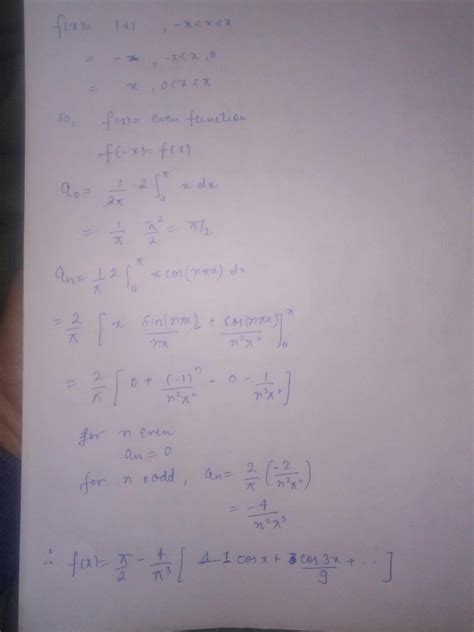 f(x) = |x| , -x < x < x
= -x , -π < x , 0
= x , 0 < x < π
So, f(x) = even function
f(-x) = f(x)
a₀ = 1/2π · 2 ∫₀^π x dx
= 1/π π²/2 = π/2
aₙ = 1/π 2 ∫₀^π x cos(nπx) dx
= 2/π [ x sin(nπx)/nπ + cos(nπx)/n²π² ]₀^π
= 2/π [ 0 + (-1)ⁿ/n²π² - 0 - 1/n²π² ]
for n even
aₙ = 0
for n odd, aₙ = 2/π (-2/n²π²)
= -4/n²π³
∴ f(x) = π/2 - 4/π³ [ 1 cos x + cos 3x/9 + ... ]